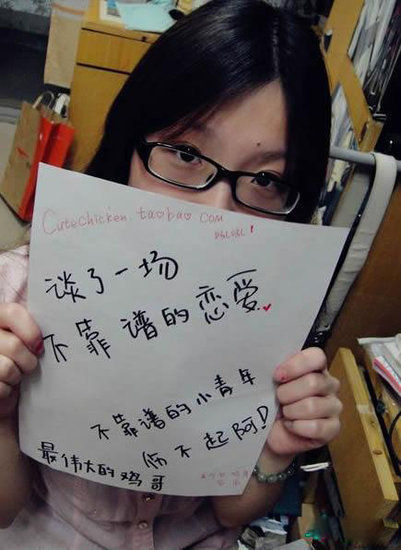 Cutechicken.taobao.com
谈了一场
不靠谱的恋爱
不靠谱的小青年
伤不起阿！
最伟大的鸡哥